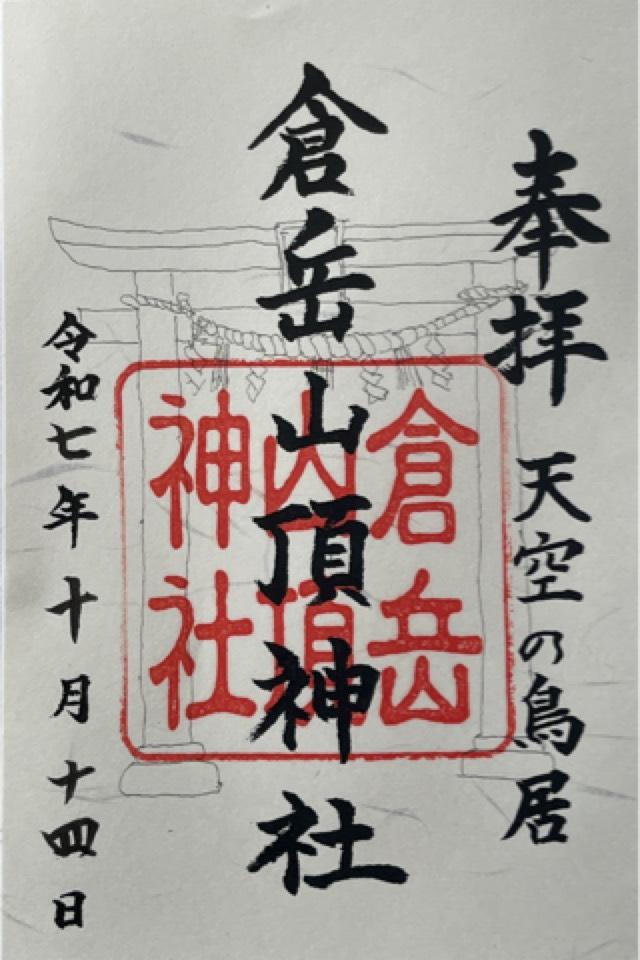 奉拝 天空の鳥居
倉岳山頂神社
倉岳
山頂
神社
令和七年十月十四日